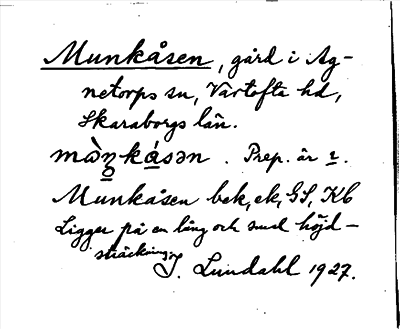 Munkåsen, gård i Ag-
netorps sn, Vartofta hd,
Skaraborgs län.
mὼŋkásən. Prep. är i.
Munkåsen bek, ek, GS, Kb
Ligger på en lång och smal höjd-
sträckning.
J. Lundahl 1927.